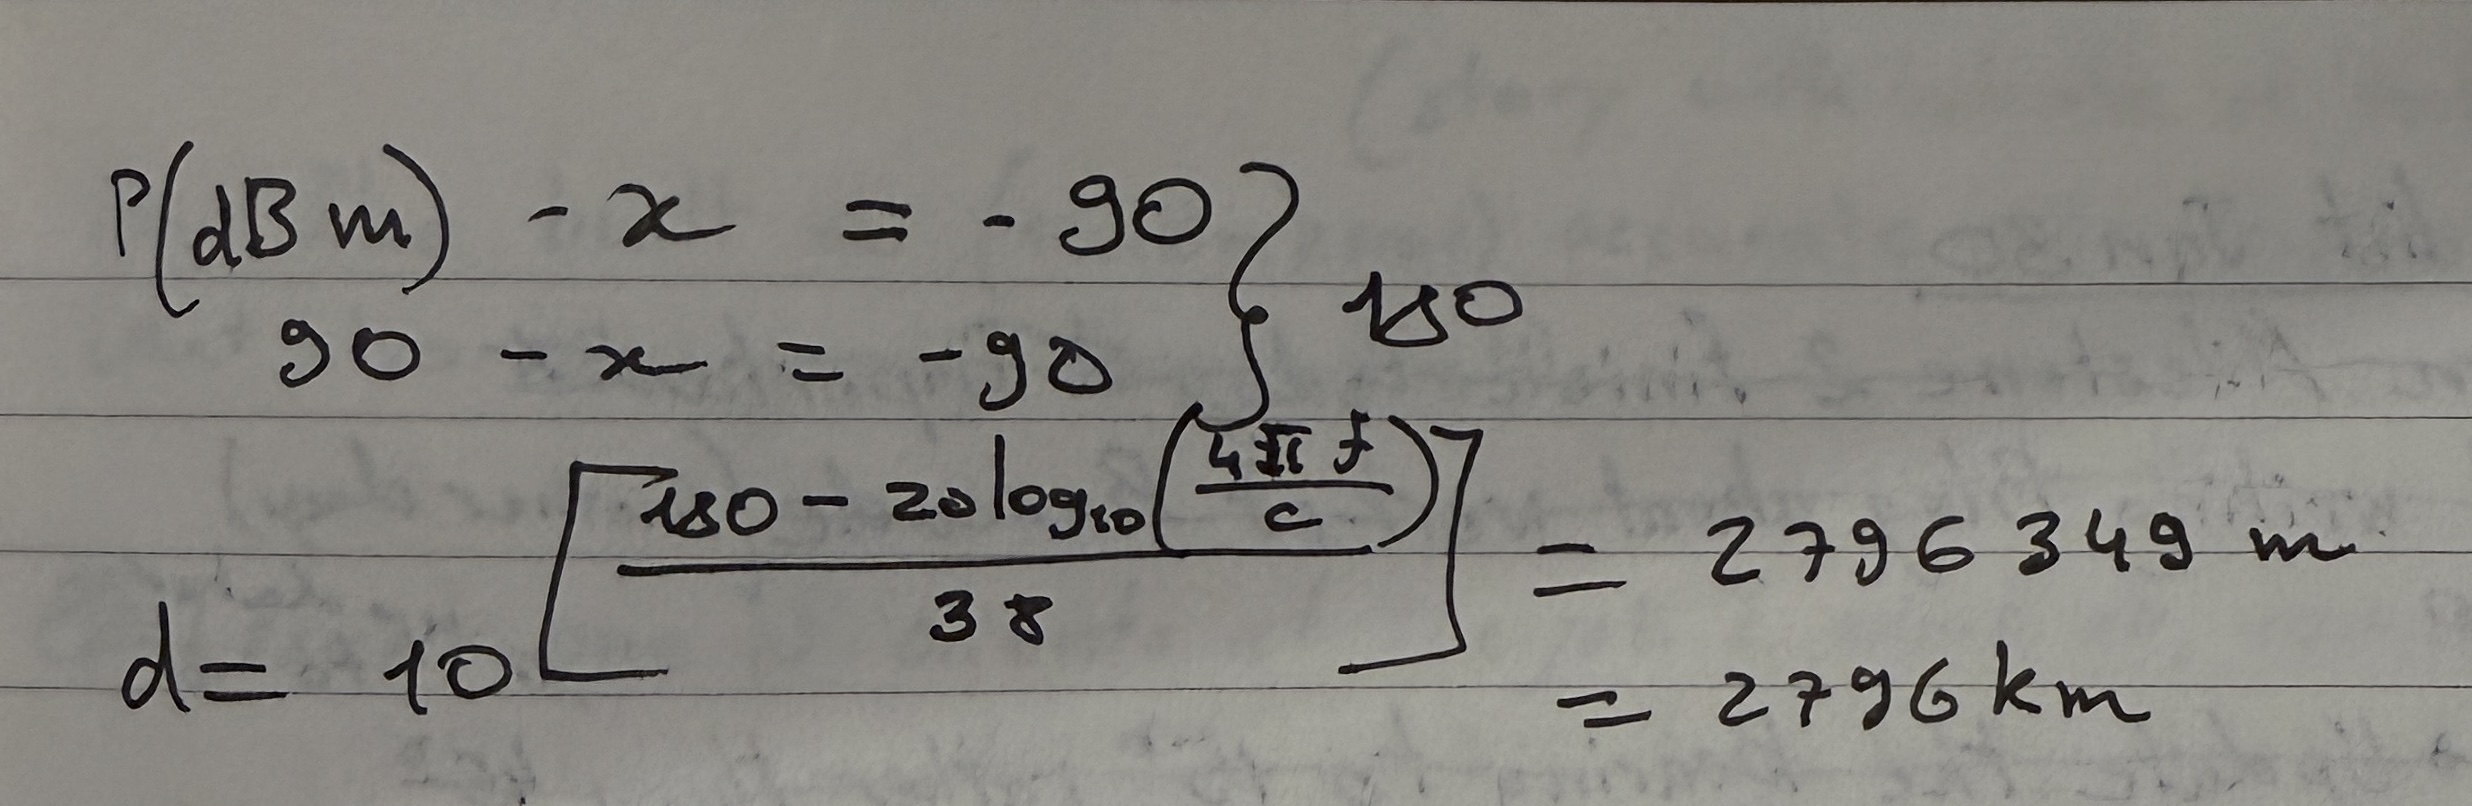 P(dBm) - x = - 90 } 180
90 - x = - 90
d = 10 [ (180 - 20 log₁₀ (4π f / c)) / 38 ] = 2796349 m
= 2796 km